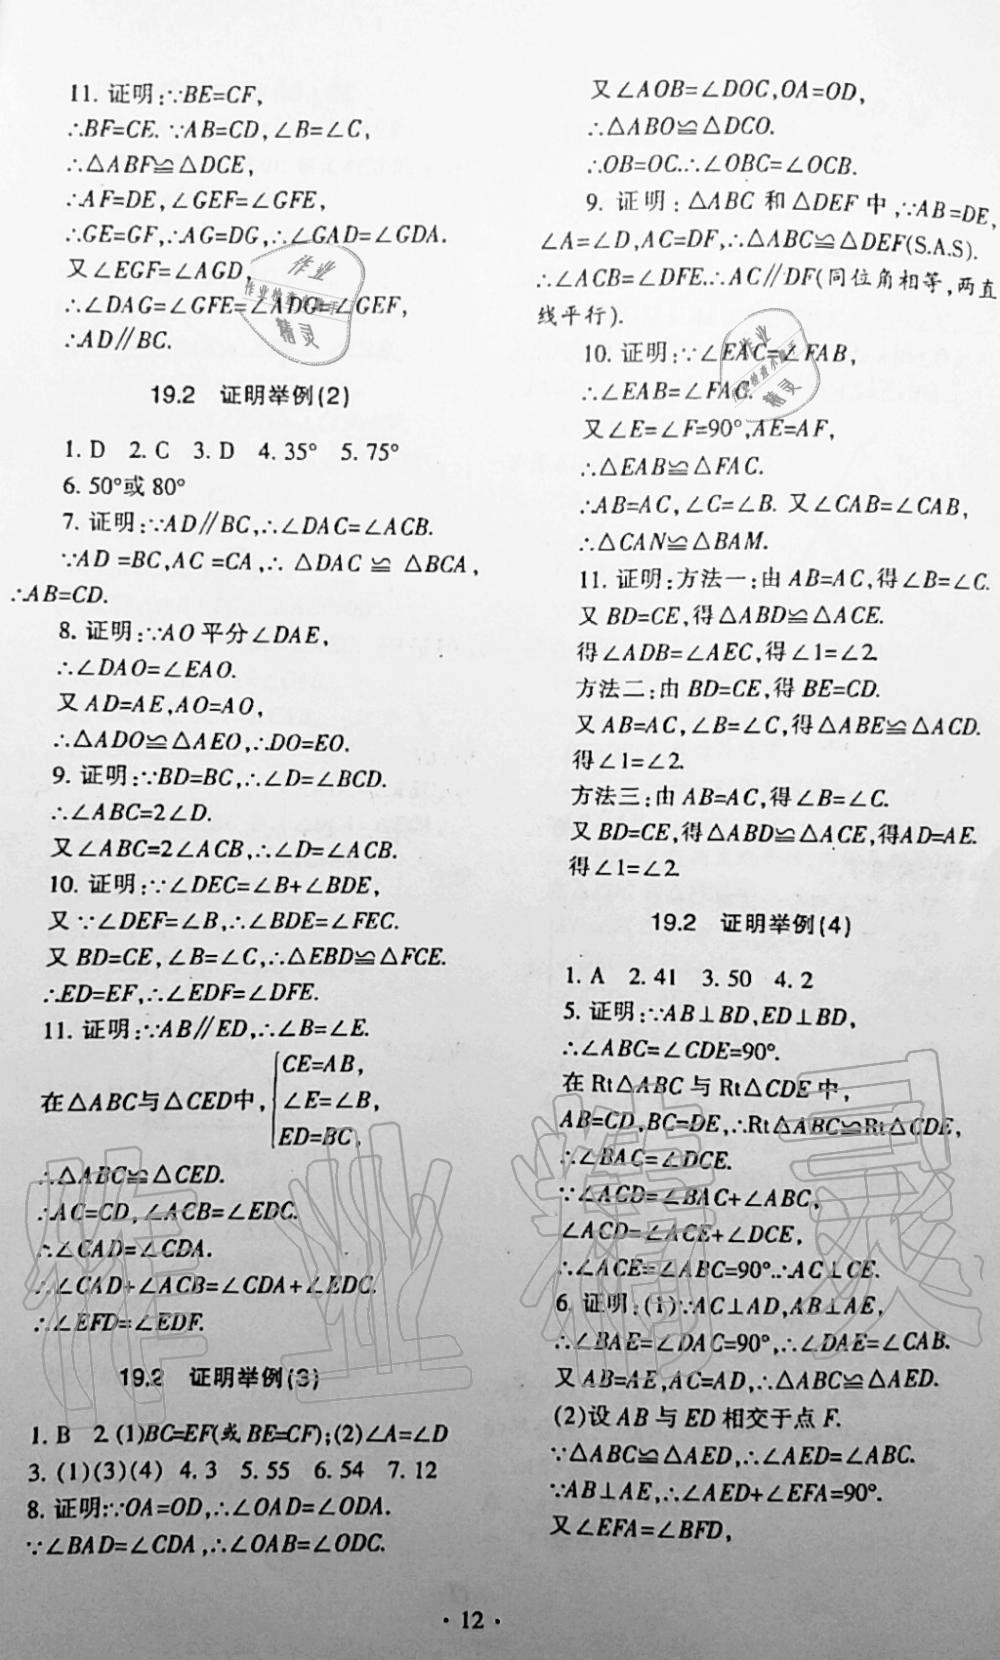 11. 证明:∵BE=CF,
∴BF=CE. ∵AB=CD,∠B=∠C,
∴△ABF≌△DCE,
∴AF=DE,∠GEF=∠GFE,
∴GE=GF,∴AG=DG,∴∠GAD=∠GDA.
又∠EGF=∠AGD,
∴∠DAG=∠GFE=∠ADG=∠GEF,
∴AD∥BC.
19.2 证明举例(2)
1. D 2. C 3. D 4. 35° 5. 75°
6. 50°或 80°
7. 证明:∵AD∥BC,∴∠DAC=∠ACB.
∵AD=BC,AC=CA,∴△DAC≌△BCA,
∴AB=CD.
8. 证明:∵AO 平分∠DAE,
∴∠DAO=∠EAO.
又 AD=AE,AO=AO,
∴△ADO≌△AEO,∴DO=EO.
9. 证明:∵BD=BC,∴∠D=∠BCD.
∴∠ABC=2∠D.
又∠ABC=2∠ACB,∴∠D=∠ACB.
10. 证明:∵∠DEC=∠B+∠BDE,
又∵∠DEF=∠B,∴∠BDE=∠FEC.
又 BD=CE,∠B=∠C,∴△EBD≌△FCE.
∴ED=EF,∴∠EDF=∠DFE.
11. 证明:∵AB∥ED,∴∠B=∠E.
CE=AB,
在△ABC与△CED中, ∠E=∠B,
ED=BC,
∴△ABC≌△CED.
∴AC=CD,∠ACB=∠EDC.
∴∠CAD=∠CDA.
∴∠CAD+∠ACB=∠CDA+∠EDC.
∴∠EFD=∠EDF.
19.2 证明举例(3)
1. B 2. (1)BC=EF(或 BE=CF);(2)∠A=∠D
3. (1)(3)(4) 4. 3 5. 55 6. 54 7. 12
8. 证明:∵OA=OD,∴∠OAD=∠ODA.
∵∠BAD=∠CDA,∴∠OAB=∠ODC.
又∠AOB=∠DOC,OA=OD,
∴△ABO≌△DCO.
∴OB=OC.∴∠OBC=∠OCB.
9. 证明:△ABC 和△DEF 中,∵AB=DE,
∠A=∠D,AC=DF,∴△ABC≌△DEF(S.A.S).
∴∠ACB=∠DFE.∴AC∥DF(同位角相等,两直
线平行).
10. 证明:∵∠EAC=∠FAB,
∴∠EAB=∠FAC.
又∠E=∠F=90°,AE=AF,
∴△EAB≌△FAC.
∴AB=AC,∠C=∠B. 又∠CAB=∠CAB,
∴△CAN≌△BAM.
11. 证明:方法一:由 AB=AC,得∠B=∠C.
又 BD=CE,得△ABD≌△ACE.
得∠ADB=∠AEC,得∠1=∠2.
方法二:由 BD=CE,得 BE=CD.
又 AB=AC,∠B=∠C,得△ABE≌△ACD.
得∠1=∠2.
方法三:由 AB=AC,得∠B=∠C.
又 BD=CE,得△ABD≌△ACE,得AD=AE.
得∠1=∠2.
19.2 证明举例(4)
1. A 2. 41 3. 50 4. 2
5. 证明:∵AB⊥BD,ED⊥BD,
∴∠ABC=∠CDE=90°.
在 Rt△ABC 与 Rt△CDE 中,
AB=CD,BC=DE,∴Rt△ABC≌Rt△CDE,
∴∠BAC=∠DCE.
∵∠ACD=∠BAC+∠ABC,
∠ACD=∠ACE+∠DCE,
∴∠ACE=∠ABC=90°.∴AC⊥CE.
6. 证明:(1)∵AC⊥AD,AB⊥AE,
∴∠BAE=∠DAC=90°,∴∠DAE=∠CAB.
又 AB=AE,AC=AD,∴△ABC≌△AED.
(2)设 AB 与 ED 相交于点 F.
∵△ABC≌△AED,∴∠AED=∠ABC.
∵AB⊥AE,∴∠AED+∠EFA=90°.
又∠EFA=∠BFD,
· 12 ·
作业精灵
作业
作业检查小助手
精灵
作业
作业检查小助手
精灵